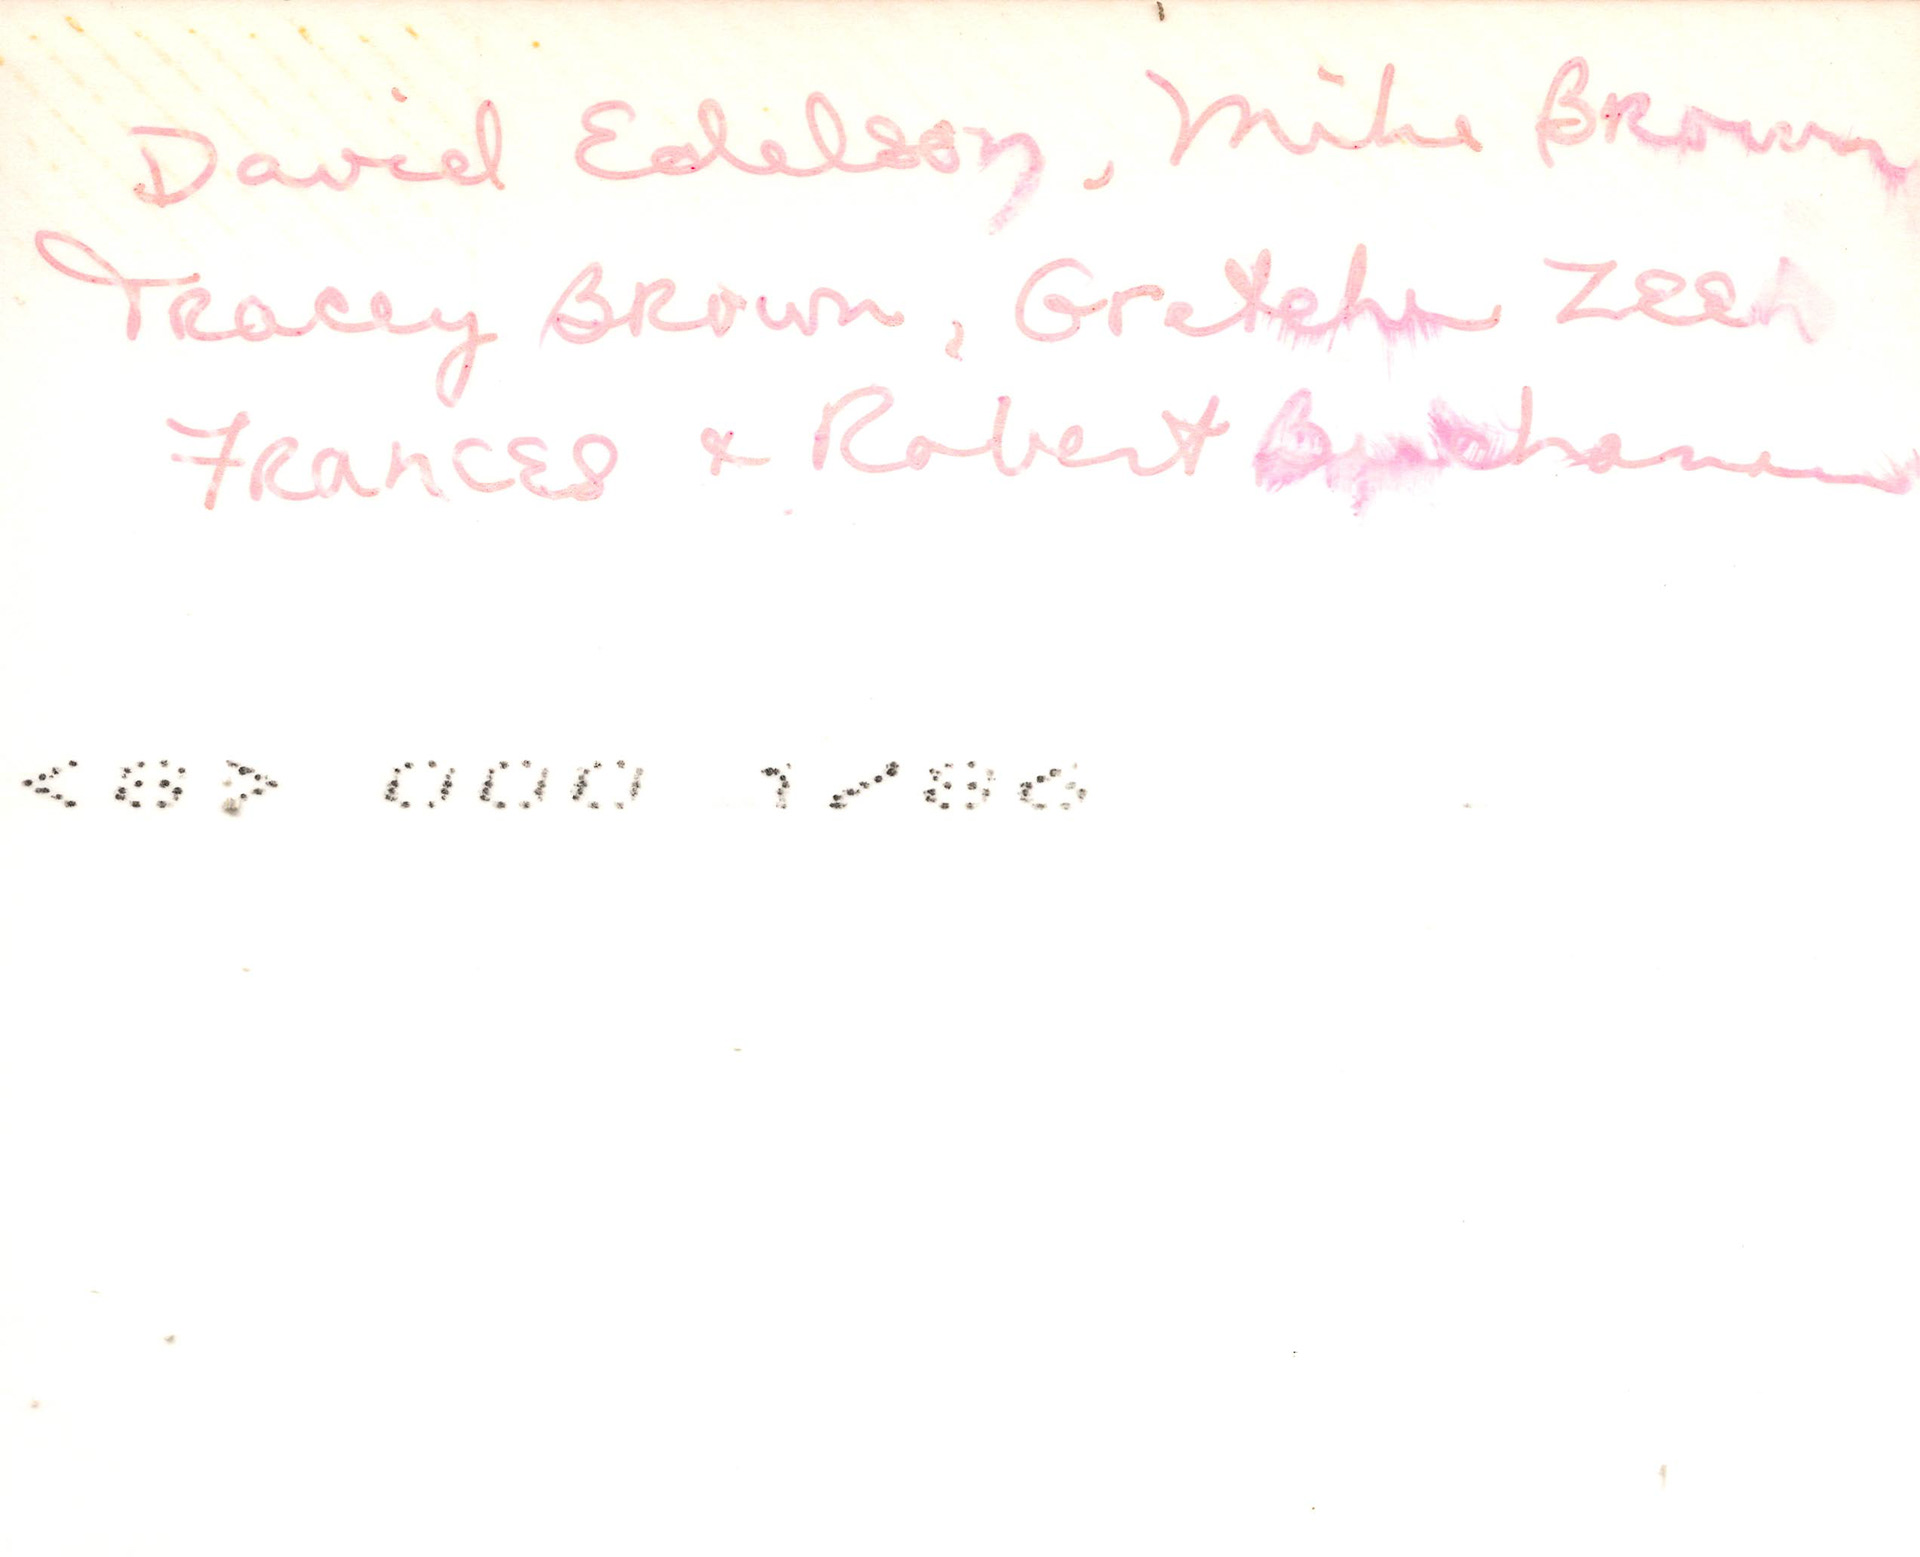 David Edelson, Mike Brown
Tracey Brown, Gretchen Zeeh
Frances & Robert
<8> 000 1/86